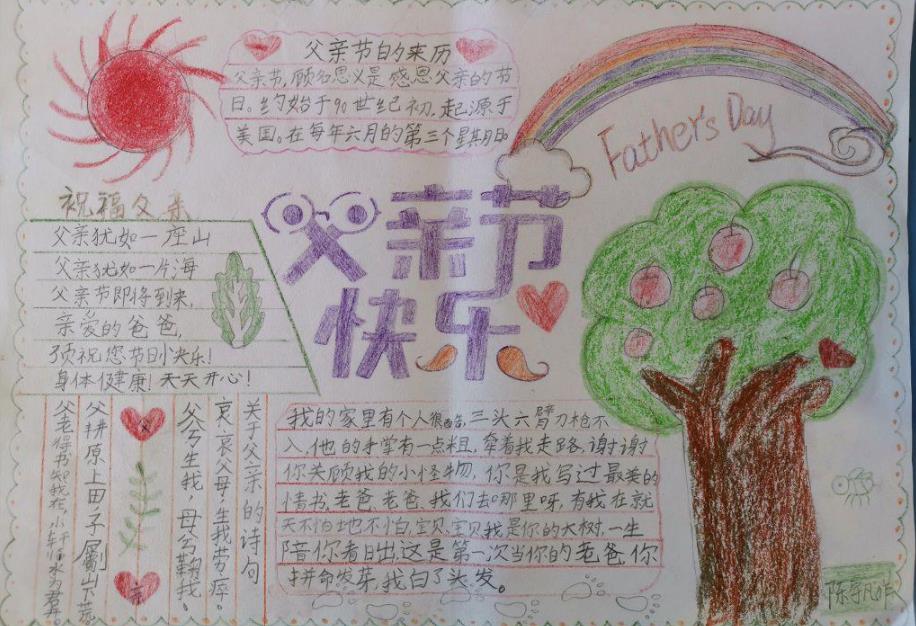 父亲节的来历
父亲节,顾名思义是感恩父亲的节
日。约始于90世纪初,起源于
美国。在每年六月的第三个星期日
Father's Day
父亲节
快乐
祝福父亲
父亲犹如一座山
父亲犹如一片海
父亲节即将到来,
亲爱的爸爸,
预祝您节日快乐!
身体健康!天天开心!
关于父亲的诗句
哀哀父母,生我劳瘁。
父兮生我,母兮鞠我。
父耕原上田,子劚山下荒
父老得书知我在,小轩临水为君开
我的家里有个人很酷,三头六臂刀枪不
入,他的手掌有一点粗,牵着我走路,谢谢
你关顾我的小怪物,你是我写过最美的
情书,老爸,老爸,我们去哪里呀,有我在就
天不怕地不怕,宝贝,宝贝我是你的大树,一生
陪你看日出,这是第一次当你的老爸,你
拼命发芽,我白了头发。